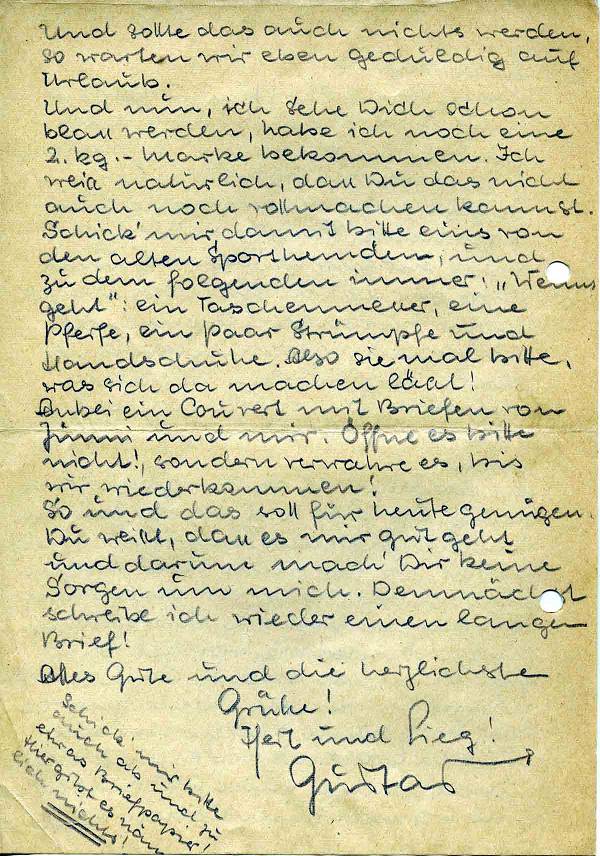 Und sollte das auch nichts werden,
so warten wir eben geduldig auf
Urlaub.
Und nun, ich sehe Dich schon
blass werden, habe ich noch eine
2. kg.- Marke bekommen. Ich
weiss natürlich, dass Du das nicht
auch noch vollmachen kannst.
Schick' mir damit bitte eins von
den alten Sporthemden, und
zu dem folgenden immer: „Wenns
geht“: ein Taschenmesser, eine
Pfeife, ein paar Strümpfe und
Handschuhe. Also sie mal bitte,
was sich da machen lässt!
Anbei ein Couvert mit Briefen von
und mir. Öffne es bitte
nicht!, sondern verwahre es, bis
wir wiederkommen!
So und das soll für heute genügen.
Du weisst, dass es mir gut geht
und darum mach' Dir keine
Sorgen um mich. Demnächst
schreibe ich wieder einen langen
Brief!
Alles Gute und die herzlichste
Grüße!
Heil und Sieg!
Gustav
Schick' mir bitte
auch ab und zu
etwas Briefpapier!
Hier gibt es näm
lich nichts!